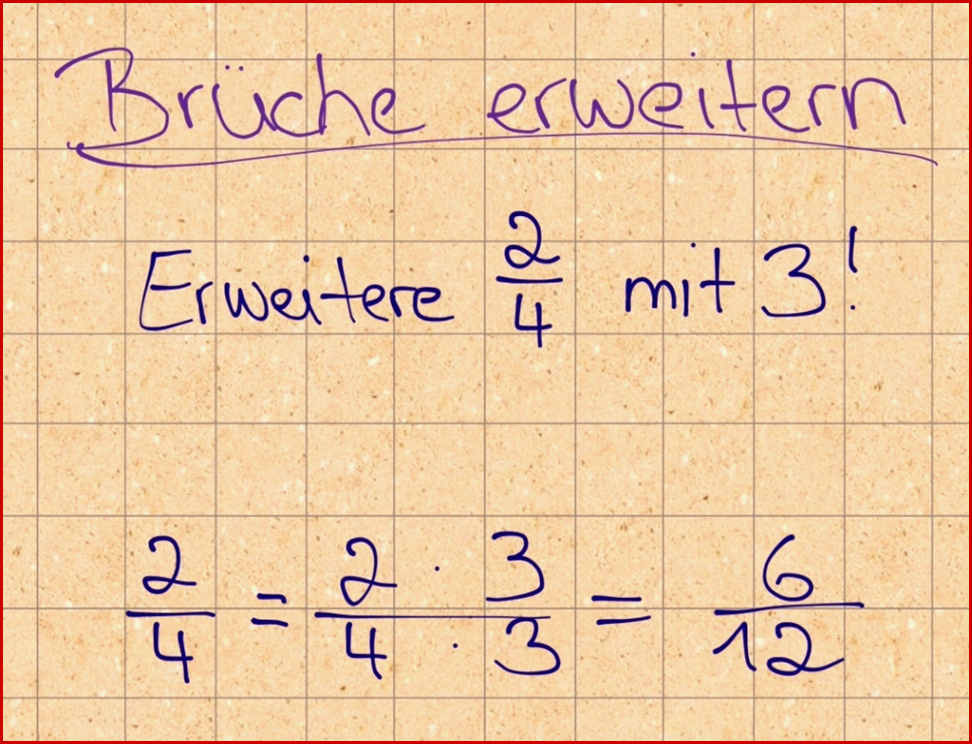 Brüche erweitern
Erweitere 2/4 mit 3!
2/4 = 2 · 3 / 4 · 3 = 6/12